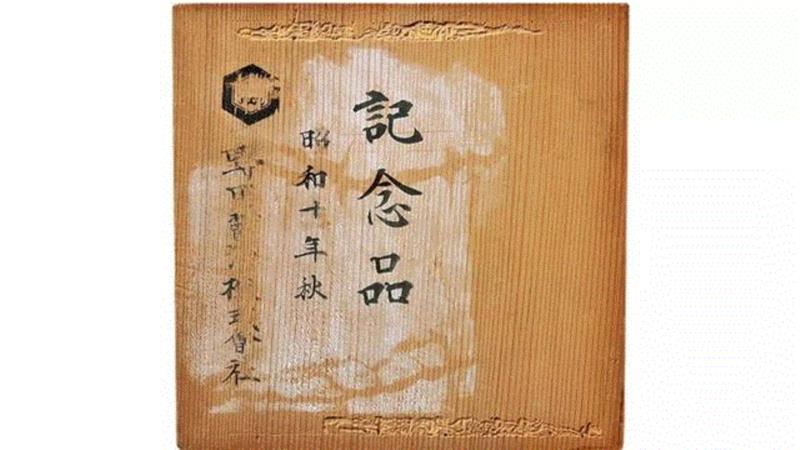 記念品
昭和十年秋
株式會社